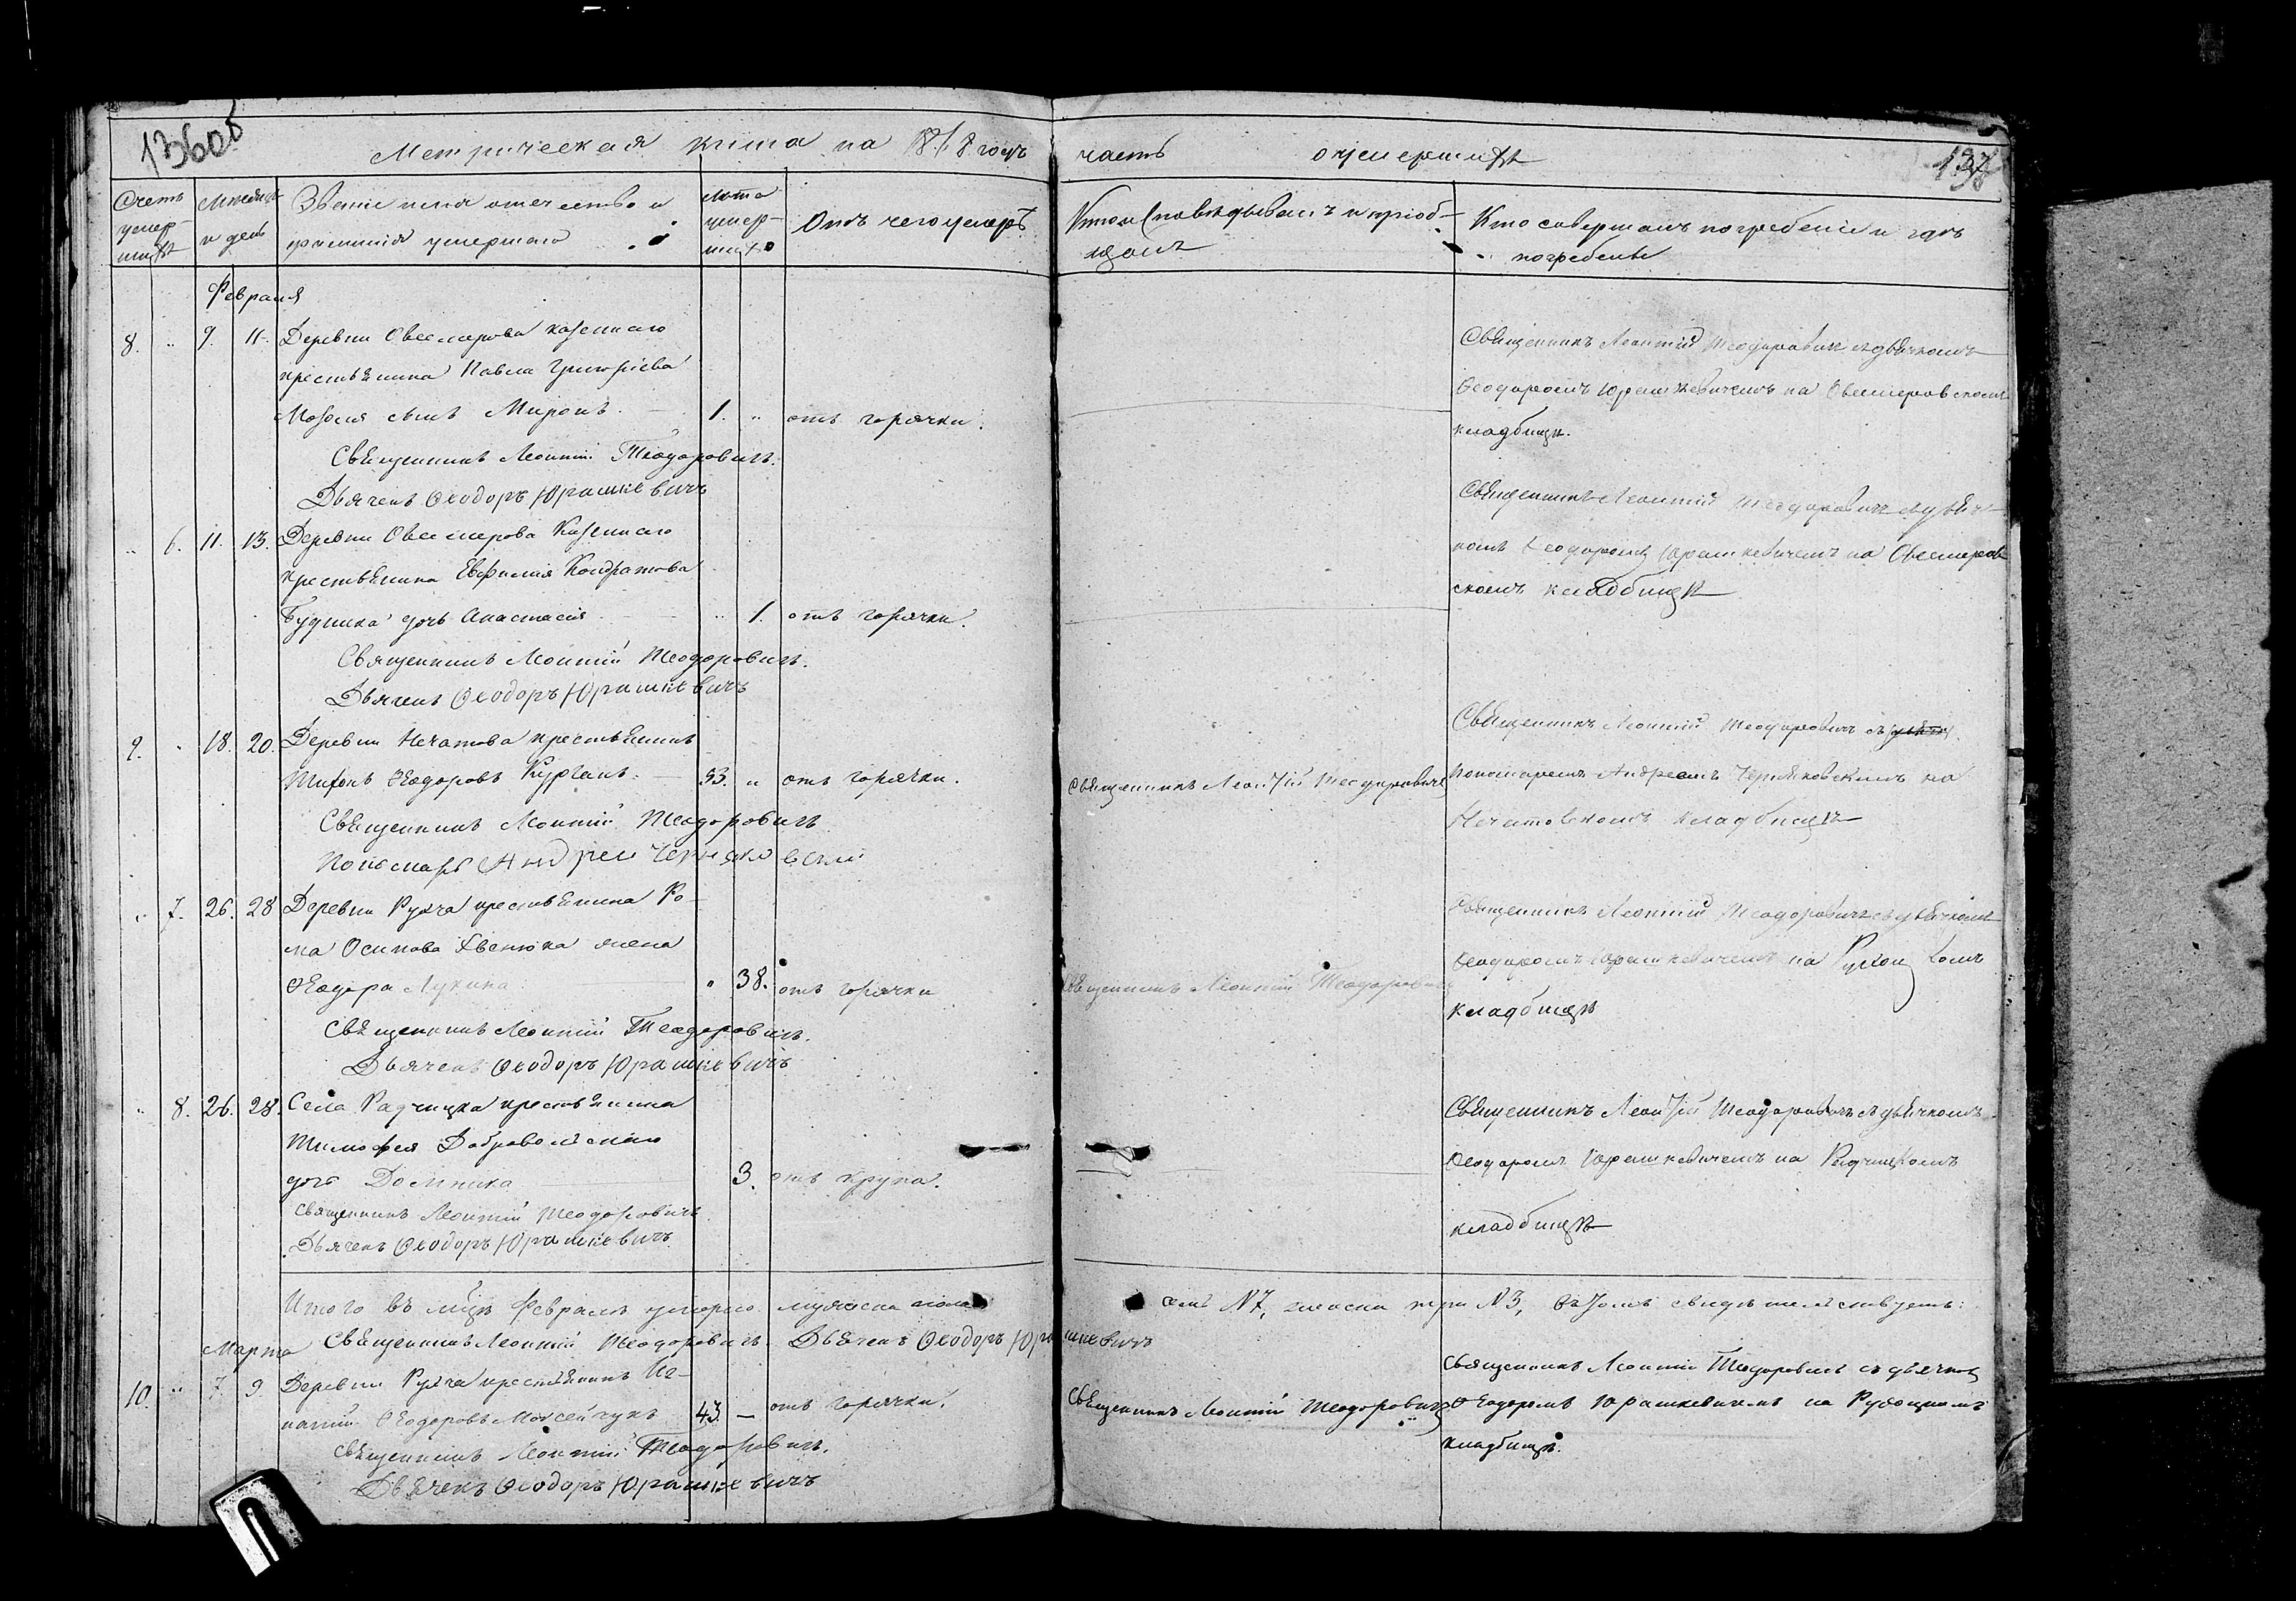 136об
Метрическая книга на 18 8 годъ часть о умершихъ
137
Счетъ умер-шихъ
Мѣсяцъ и день
Званіе имя отечество и фамилія умершаго
Лѣта умер-шихъ
Отъ чего умеръ
Кто исповѣдывалъ и пріоб-щалъ
Кто совершалъ погребеніе и гдѣ погребены
Февраля
8. „ 9. 11. Деревни Овсемерова казеннаго
крестьянина Павла Григоріева
сынъ Миронъ. 1. „ отъ горячки.
Священникъ Леонтій Теодоровичъ.
Дьячекъ Ѳеодоръ Юрашкевичъ
Священникъ Леонтій Теодоровичъ съ дьячкомъ
Ѳеодоромъ Юрашкевичемъ на Овсемеровскомъ
кладбищѣ.
„ 6. 11. 13. Деревни Овсемерова Казеннаго
крестьянина Евфимія Кондратова
Будника дочь Анастасія „ 1. отъ горячки.
Священникъ Леонтій Теодоровичъ.
Дьячекъ Ѳеодоръ Юрашкевичъ
Священникъ Леонтій Теодоровичъ съ дьяч-
комъ Ѳеодоромъ Юрашкевичемъ на Овсемеров-
скомъ кладбищѣ
9. „ 18. 20. Деревни Нечатова крестьянинъ
Ѳеодоровъ Курганъ. 53. „ отъ горячки.
Священникъ Леонтій Теодоровичъ
Пономарь Андрей Черняковскій
Священникъ Леонтій Теодоровичъ
Священникъ Леонтій Теодоровичъ съ
пономаремъ Андреемъ Черняковскимъ на
Нечатовскомъ кладбищѣ
„ 7. 26. 28 Деревни Рухча крестьянина Ро-
ма Осипова жена
Ѳеодора Лукина: „ 38. отъ горячки
Священникъ Леонтій Теодоровичъ.
Дьячекъ Ѳеодоръ Юрашкевичъ
Священникъ Леонтій Теодоровичъ
Священникъ Леонтій Теодоровичъ съ дьячкомъ
Ѳеодоромъ Юрашкевичемъ на
кладбищѣ
„ 8. 26. 28. Села Радчицка крестьянина
Тимофея Добровольскаго
дочь Домника 3. отъ крупа.
Священникъ Леонтій Теодоровичъ
Дьячекъ Ѳеодоръ Юрашкевичъ
Священникъ Леонтій Теодоровичъ съ дьячкомъ
Ѳеодоромъ Юрашкевичемъ на Радчицкомъ
кладбищѣ
Итого въ м̃цѣ Февралѣ умерло мужеска пола N 7, женска N 3, въ томъ свидѣтельствуемъ:
Священникъ Леонтій Теодоровичъ Дьячекъ Ѳеодоръ Юрашкевичъ
Марта
10. „ 7. 9. Деревни Рухча крестьянинъ Иг-
натій Ѳеодоровъ Мойсейчукъ 43. — отъ горячки.
Священникъ Леонтій Теодоровичъ.
Дьячекъ Ѳеодоръ Юрашкевичъ
Священникъ Леонтій Теодоровичъ
Священникъ Леонтій Теодоровичъ съ дьячкомъ
Ѳеодоромъ Юрашкевичемъ на
кладбищѣ.